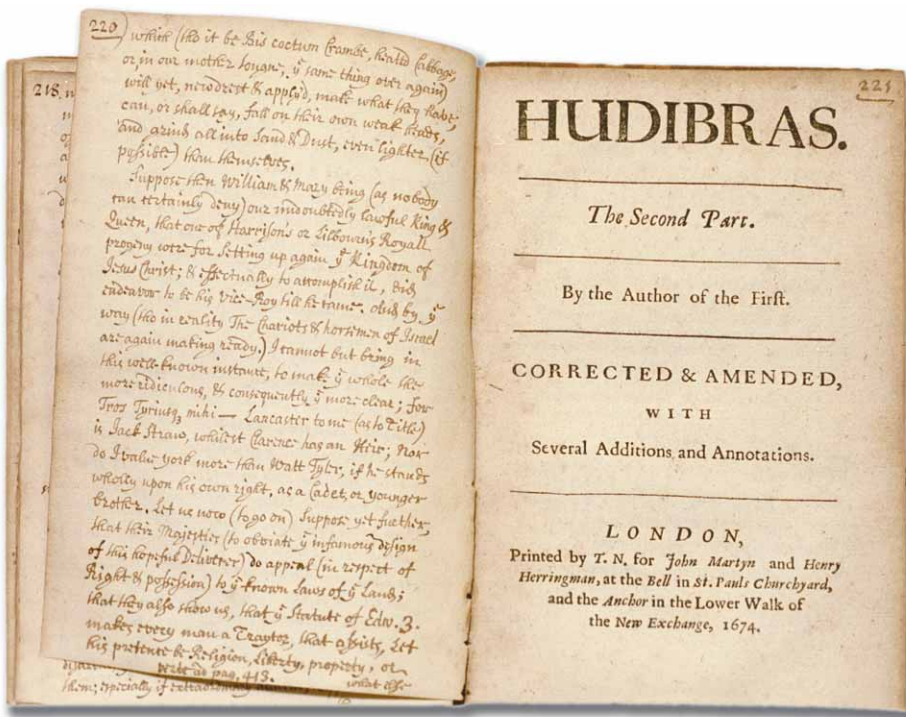 220
which (tho it be Bis coctum Crambe, heated Cabbage,
or, in our mother tongue, ÿ same thing over again)
will yet, newdrest & apply'd, make what they have,
can, or shall say, fall on their own weak heads,
and grind all into Sand & Dust, even lighter (if
possible) than themselves.
Suppose then William & Mary being (as nobody
can certainly deny) our undoubtedly lawful King &
Queen, that one of Harrison's or Lilbourn's Royall
progeny were for setting up again ÿ Kingdom of
Jesus Christ; & effectually to accomplish it, did
endeavor to be his Vice-Roy till he came. And by ÿ
way (tho in reality The Chariots & horsemen of Israel
are again making ready.) I cannot but bring in
this well-known instance, to make ÿ whole the
more ridiculous, & consequently ÿ more clear; for
Tros Tyriusq, mihi — Lancaster to me (as to Title)
is Jack Straw, whilest Clarence has an Heir; Nor
do I value York more than Watt Tyler, if he stands
wholly upon his own right, as a Cadet, or younger
brother. Let us now (to go on) Suppose yet further,
that their Majesties (to obviate ÿ infamous design
of this hopeful Deliverer) do appeal (in respect of
Right & possession) to ÿ known Laws of ÿ Land;
that they also show us, that ÿ Statute of Edw. 3.
makes every man a Traytor, that assists, Let
his pretence be Religion, Liberty, property, or
verte ad pag. 413. what else
them; especially if
218
221
HUDIBRAS.
The Second Part.
By the Author of the First.
CORRECTED & AMENDED,
WITH
Several Additions and Annotations.
LONDON,
Printed by T. N. for John Martyn and Henry
Herringman, at the Bell in St. Pauls Churchyard,
and the Anchor in the Lower Walk of
the New Exchange, 1674.